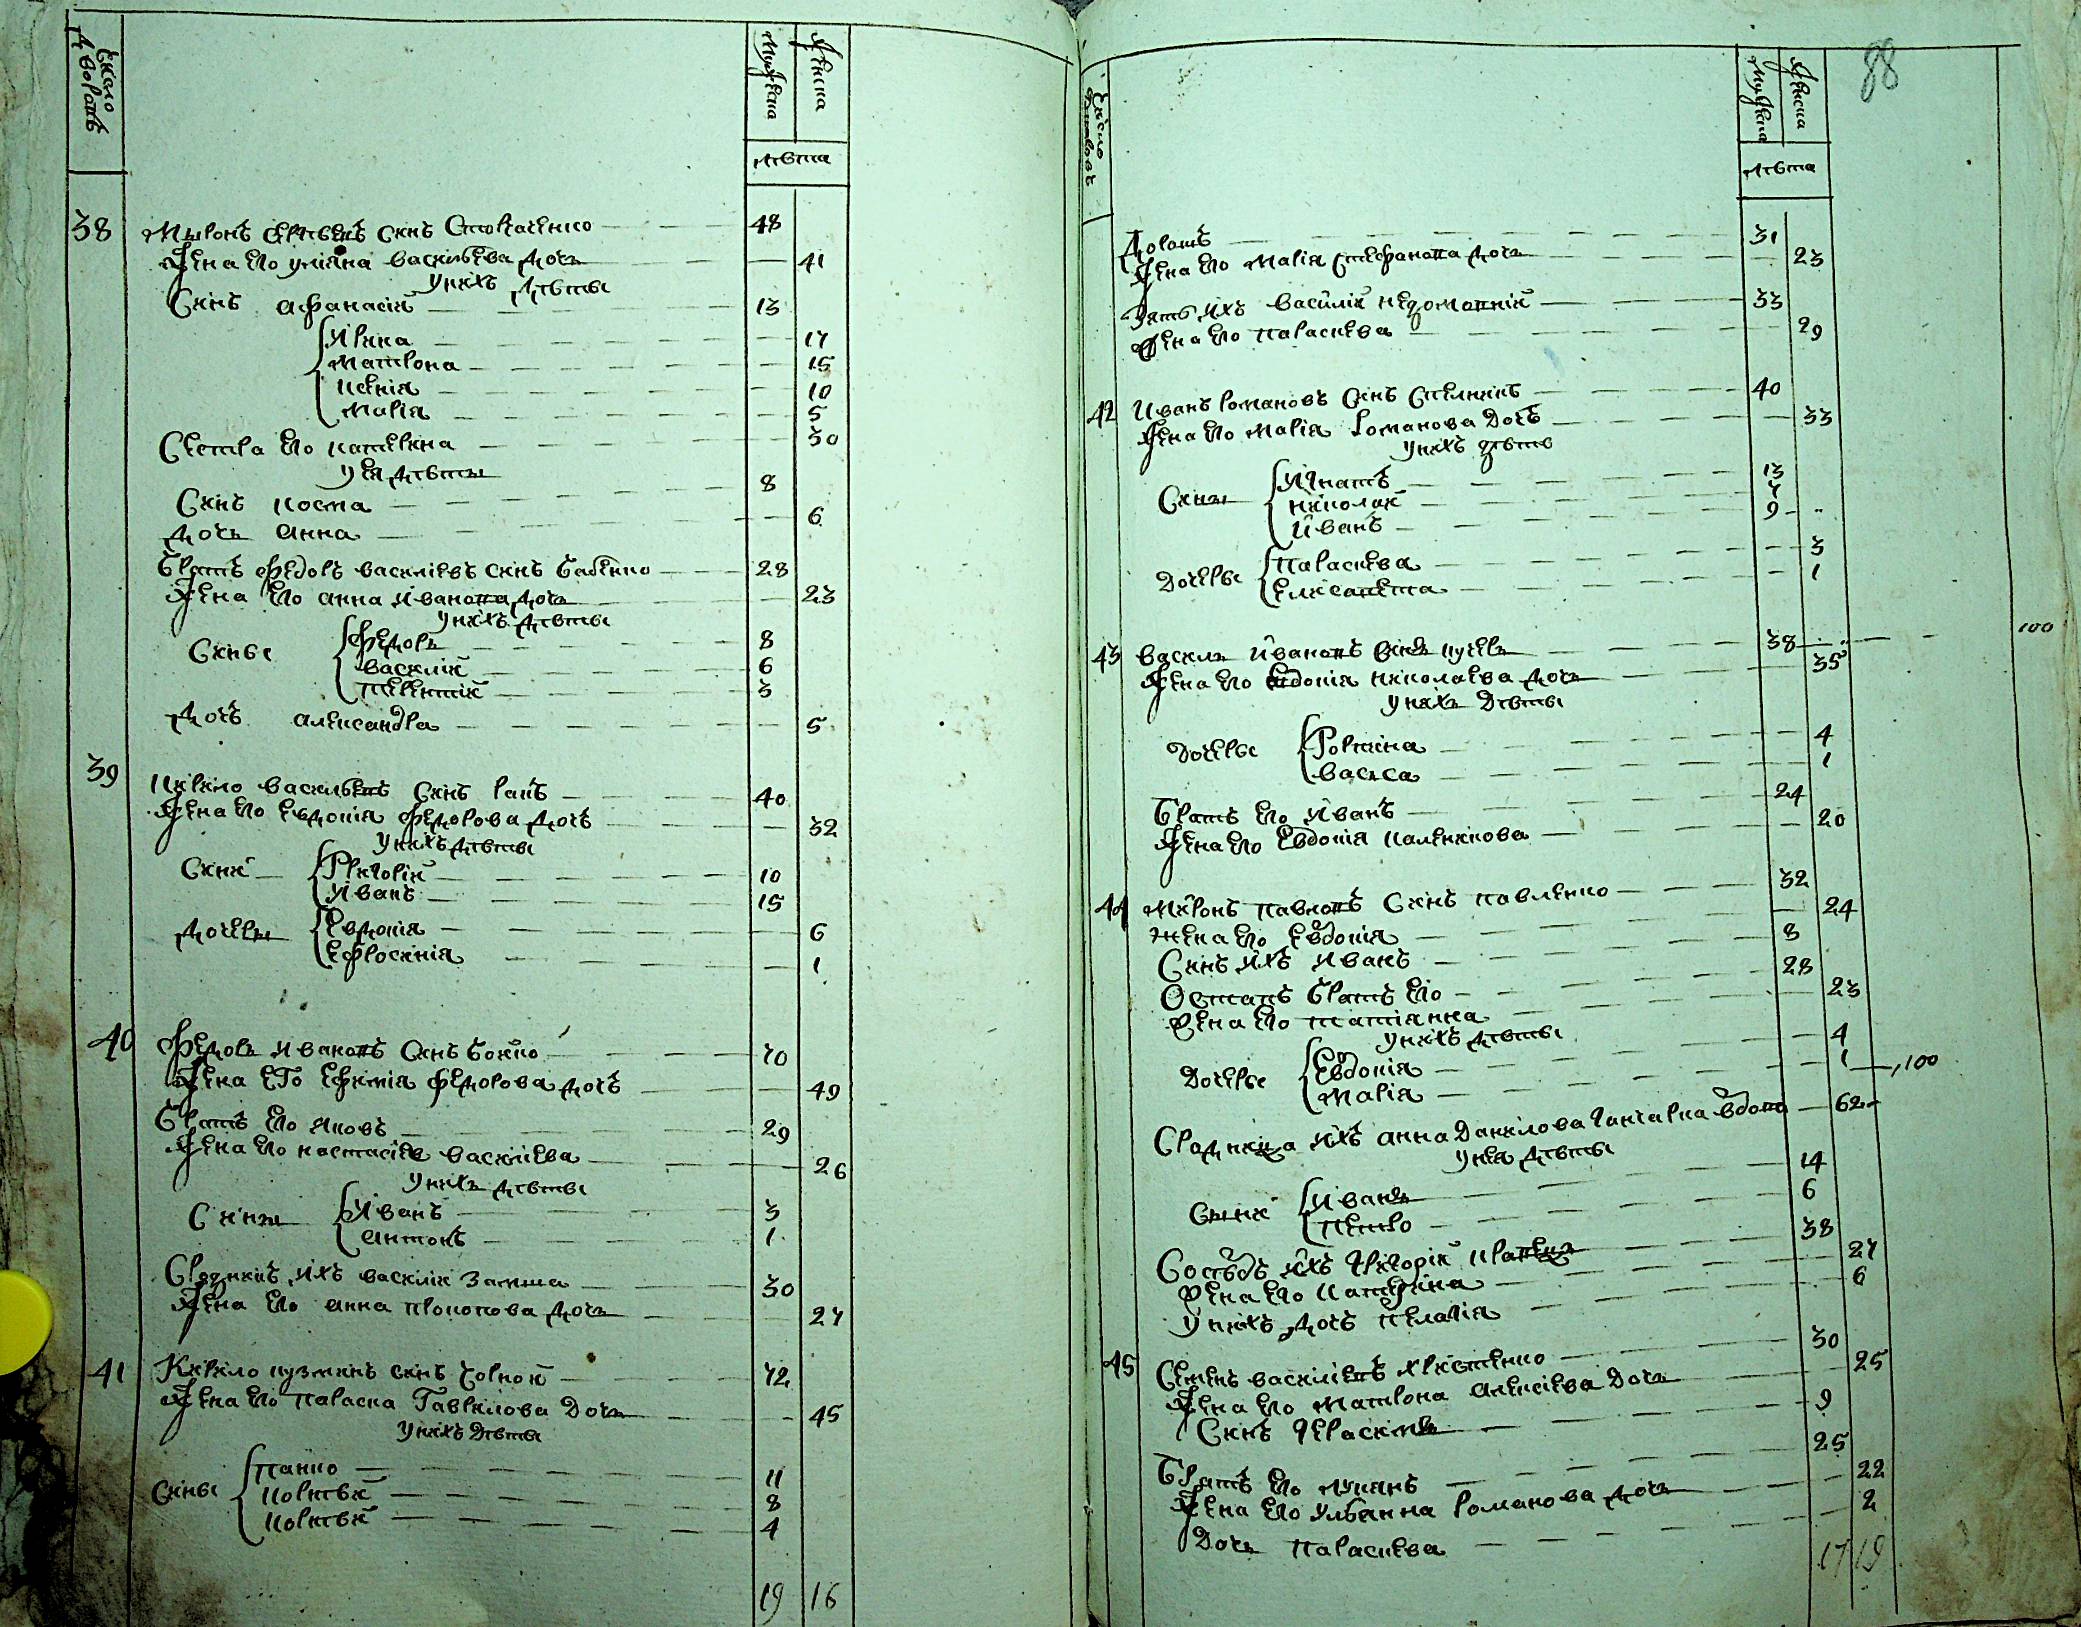 Число дворовъ
Мужеска
Женска
лѣта
38 Миронъ сынъ 48
Жена его улияна василѣева дочь 41
у нихъ дѣты
Синъ афанасій 13
Ирина 17
Матрона 15
ксенія 10
марія 5
Сестра его катерина 30
у ея дѣты
Синъ коста 8
дочь анна 6
братъ федоръ василіевъ синъ бабенко 28
Жена его анна иванова дочь 23
у нихъ дѣты
Синве федоръ 8
василій 6
терентій 3
дочь александра 5
39 кирило василѣевъ Синъ 40
Жена его евдокія федорова дочъ 32
у нихъ дѣты
Сини Григорій 10
Иванъ 15
дочери Евдокія 6
ефросинія 1
40 федоръ Ивановъ Синъ бойко 70
Жена его ефимія федорова дочъ 49
братъ его яковъ 29
Жена его настасія василіева 26
у нихъ дѣты
Сины Иванъ 3
антонъ 1
Сродникъ ихъ василій 30
Жена его анна прокопова дочь 27
41 Кирило кузминъ синъ чорной 72
Жена его параска Гаврилова дочь 45
у нихъ дѣты
Синве панко 11
кор 8
кор 4
19 16
88
Число дворовъ
Мужеска
Женска
лѣта
31
Жена его марія стефанова дочь 23
Зять ихъ василій 33
Жена его параскева 29
42 Иванъ романовъ Синъ 40
Жена его марія романова дочъ 33
у нихъ дѣте
Сины Игнатъ 13
николай 7
Иванъ 9
дочерве параскева 3
елисавета 1
43 василь Ивановъ Синъ 38
100
Жена его евдокія николаева дочь 35
у нихъ дѣты
дочерве 4
васса 1
братъ его Иванъ 24
Жена его Евдокія каленикова 20
44 Миронъ павловъ Синъ павленко 32
жена его Евдокія 24
Синъ ихъ Иванъ 8
Остапъ братъ его 28
Жена его татіянна 23
у нихъ дѣты
дочерве Евдокія 4
марія 1 100
Сродница ихъ анна данилова вдова 62
у нея дѣты
Сыни Иванъ 14
петро 6
Сосѣдъ ихъ григорій 38
Жена его катерина 27
у нихъ дочъ пелагія 6
45 Семенъ василіевъ 30
Жена его матрона алексіева дочь 25
Синъ герасимъ 9
братъ его лукянъ 25
Жена его улѣянна романова дочь 22
дочь параскева 2
17 19